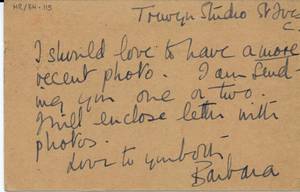 MR/BH-115
Trewyn Studio St Ives
C.
I should love to have a more
recent photo. I am send
ing you one or two.
I will enclose letter with
photos.
Love to you both
Barbara